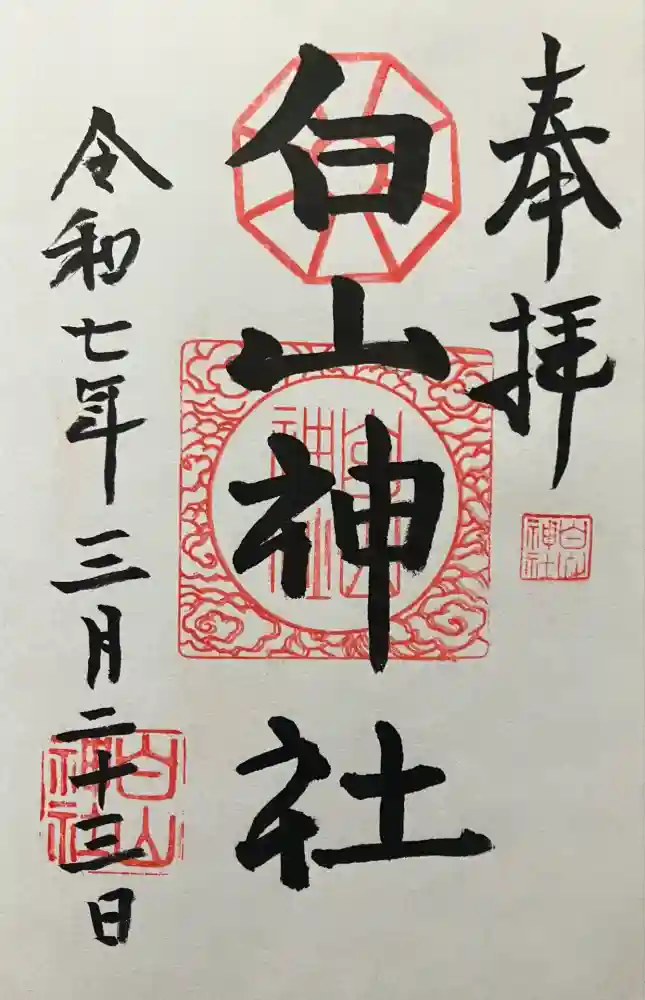 奉拝
白山
神社
白山神社
白山
神社
令和七年三月二十三日
白山
神社